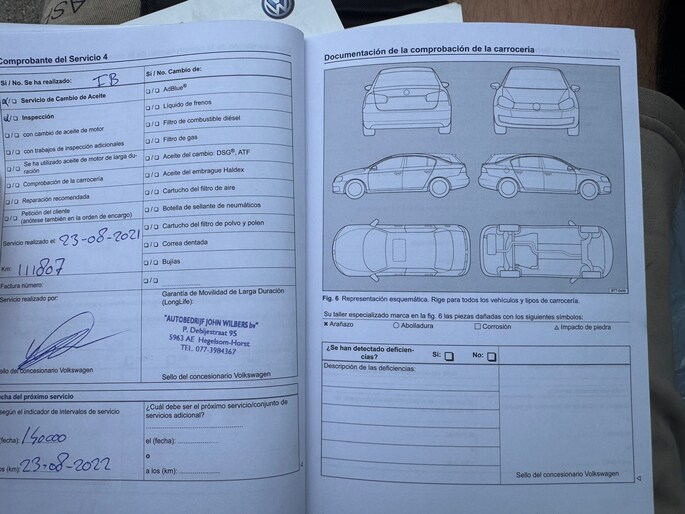 Comprobante del Servicio 4
Sí / No. Se ha realizado: IB
Servicio de Cambio de Aceite
Inspección
con cambio de aceite de motor
con trabajos de inspección adicionales
Se ha utilizado aceite de motor de larga du-
ración
Comprobación de la carrocería
Reparación recomendada
Petición del cliente
(anótese también en la orden de encargo)
Servicio realizado el: 23-08-2021
Km: 111807
Factura número:
Servicio realizado por:
Sello del concesionario Volkswagen
Sí / No. Cambio de:
AdBlue®
Líquido de frenos
Filtro de combustible diésel
Filtro de gas
Aceite del cambio: DSG®, ATF
Aceite del embrague Haldex
Cartucho del filtro de aire
Botella de sellante de neumáticos
Cartucho del filtro de polvo y polen
Correa dentada
Bujías
Garantía de Movilidad de Larga Duración
(LongLife):
"AUTOBEDRIJF JOHN WILBERS bv"
P. Debijestraat 95
5963 AE Hegelsom-Horst
TEL. 077-3984367
Sello del concesionario Volkswagen
Fecha del próximo servicio
según el indicador de intervalos de servicio
(fecha): 150000
(km): 23-08-2022
¿Cuál debe ser el próximo servicio/conjunto de
servicios adicional?
el (fecha):
o
a los (km):
Documentación de la comprobación de la carrocería
Fig. 6 Representación esquemática. Rige para todos los vehículos y tipos de carrocería.
Su taller especializado marca en la fig. 6 las piezas dañadas con los siguientes símbolos:
× Arañazo ○ Abolladura □ Corrosión △ Impacto de piedra
¿Se han detectado deficien-
cias? Sí: □ No: □
Descripción de las deficiencias:
Sello del concesionario Volkswagen